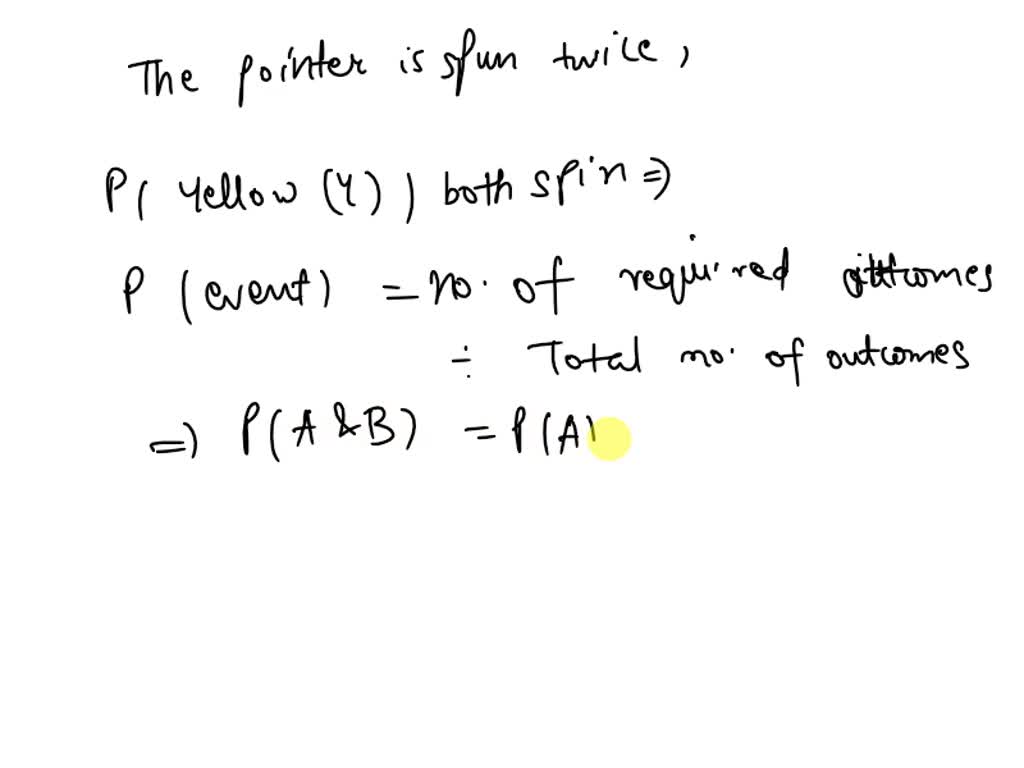 The pointer is spun twice,
P( Yellow (Y) ) both spin ⇒
P (event) = no. of required outcomes
÷ Total no. of outcomes
⇒ P(A & B) = P(A)